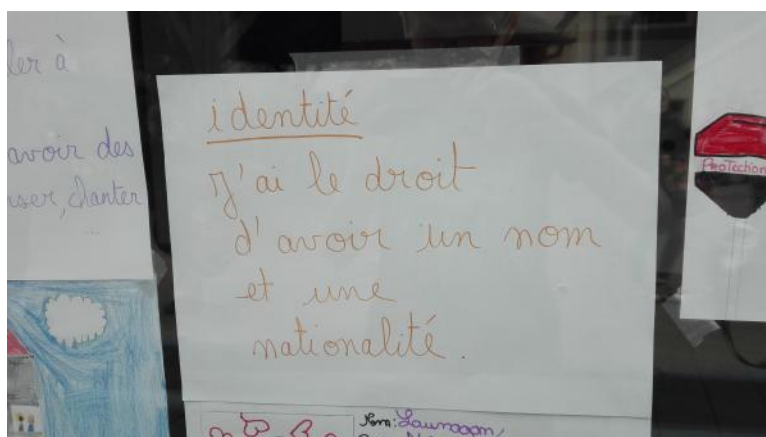 ler à
avoir des
user, chanter
...
identité
J'ai le droit
d'avoir un nom
et une
nationalité.
ProTection
Nom: